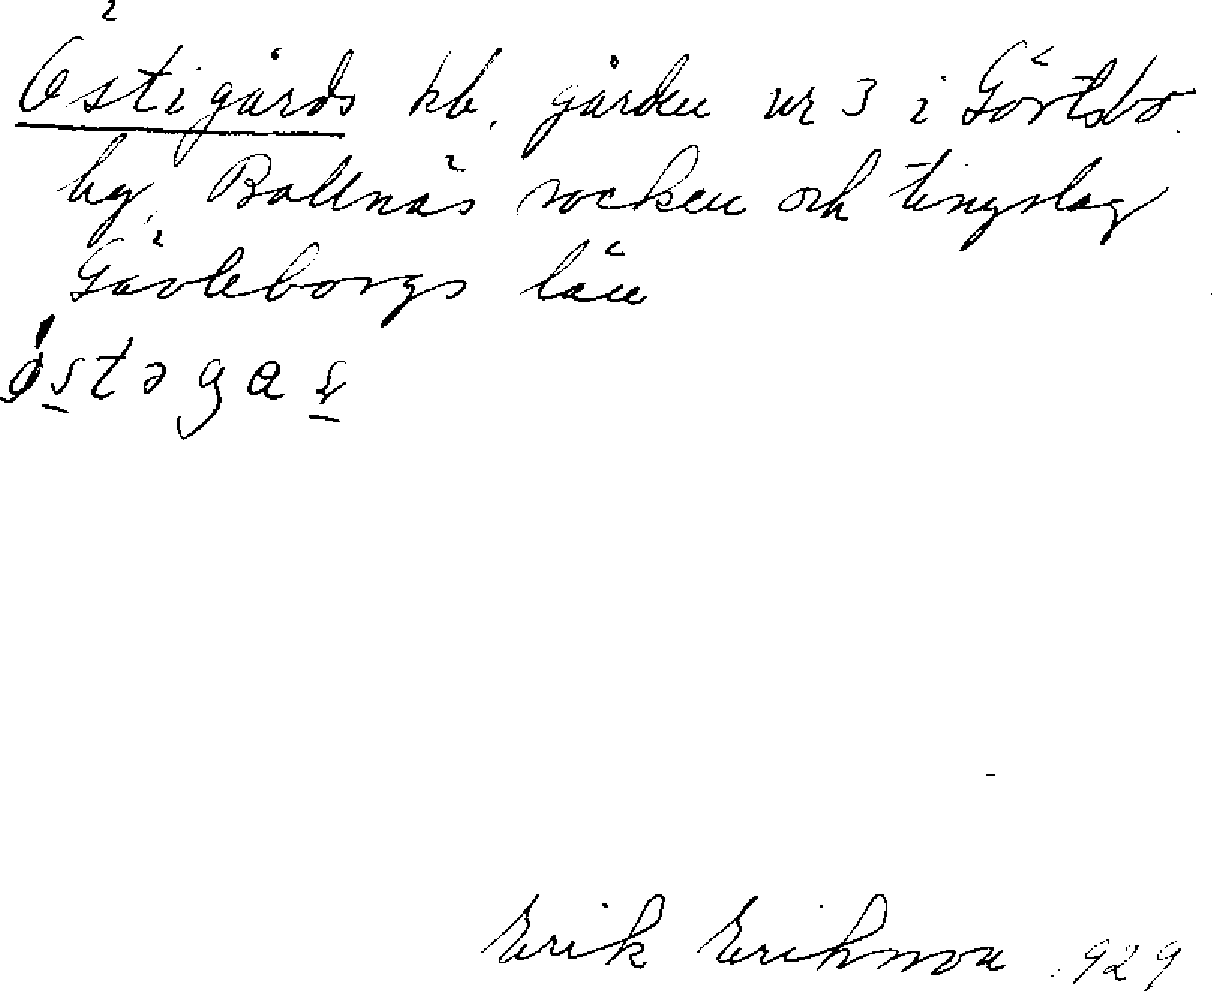 Östigårds kb. gården nr 3 i Görtsbo
by, Bollnäs socken och tingslag
Gävleborgs län
östəgaṣ
Erik Eriksson 1929